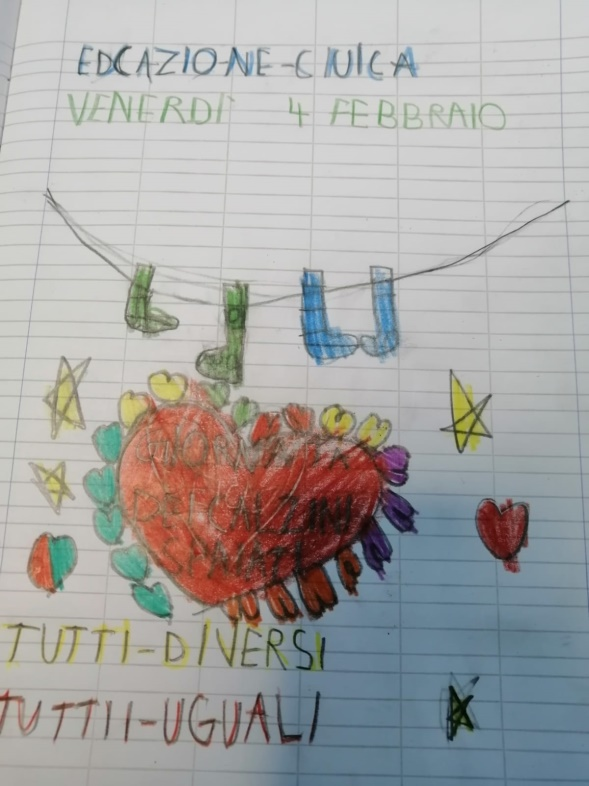 EDCAZIONE-CIVICA
VENERDI' 4 FEBBRAIO
GIORNATA
DEI CALZINI
SPAIATI
TUTTI-DIVERSI
TUTTII-UGUALI